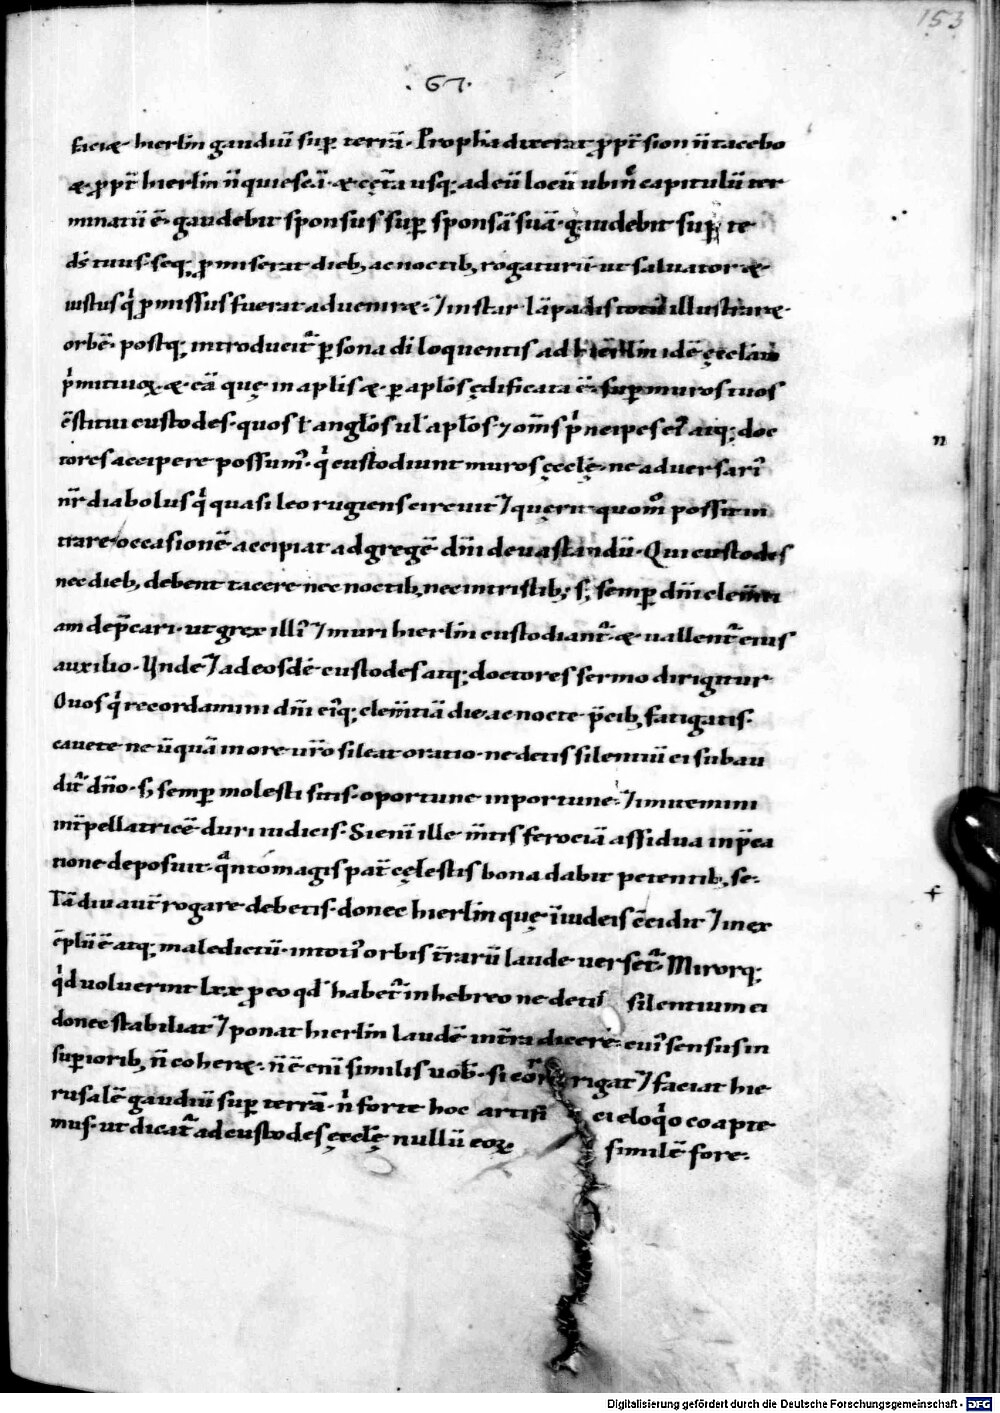 153
. 67.
faciæ hierlm̄ gaudiū sup̱ terrā. Propħa dixerat ꝓpt̄ sion n̄ tacebo
æ ꝓpt̄ hierlm̄ n̄ quiescā. æ cęt̄a usq; ad eū locū ubi capitulū ter
minatū ē. gaudebit sponsus sup̱ sponsā suā. gaudebit sup̱ te
ds̄ tuus. seq, ꝓmiserat dieb; ac noctib; rogaturū. ut saluator æ
iustus qͥ ꝓmissus fuerat adueniræ. ⁊ instar lāpadis totū illustraræ
orbē. postq; introducit᷑ ꝑsona dī loquentis ad hierlm̄ idē ęcclam̄
pͥmitiuoꝝ. æ eā quę in aplīs æ ꝑ aplōs ędificata ē. sup̱ muros tuos
c̄stitui custodes. quos ł anglōs uł aplōs. ⁊ om̄s pͥncipes eiꝰ atq; doc
tores accipere possumꝰ. qͥ custodiunt muros ęcclę. ne aduersariꝰ
nr̄ diabolus qͥ quasi leo rugiens circuit ⁊ quęrit quom̊ possit in
trare occasionē accipiat ad gregē dn̄i deuastandū. Qui custodes
nec dieb; debent tacere nec noctib; nec in tristib; s; semp̱ dn̄i clem̄ti
am dep̄cari. ut grex illiꝰ ⁊ muri hierlm̄ custodiant᷑. æ uallent᷑ eius
auxilio. Unde ⁊ ad eosdē custodes atq; doctores sermo dirigitur
Quos qͥ recordamini dn̄i eiꝰq; clem̄tiā die ac nocte p̄cib; fatigatis.
cauete ne ūquā in ore ur̄o sileat oratio. ne detis silentiū ei subau
dit᷑ dn̄o. s; semp̱ molesti sitis. oportune inportune. ⁊ imitemini
int̄pellatricē duri iudicis. Si enī ille m̄tis ferociā assidua inp̄ca
tione deposuit. qͣnto magis pat̄ cęlestis bona dabit petentib; se.
Tā diu aut̄ rogare debetis. donec hierlm̄ quę īiudeis c̄cidit ⁊ in ex
ēplū ē atq; maledictū. in totiꝰ orbis t̄rarū laude uerset᷑. Mirorq;
qͥd uoluerint lxx ꝓ eo qd̄ habet᷑ in hebreo ne detis silentium ei
donec stabiliat ⁊ ponat hierlm̄ laudē in t̄ra dicere. cuiꝰ sensus in
sup̱iorib; n̄ cohereæ. n̄ ē enī similis uob̄. si corrigat ⁊ faciat hie
rusalē gaudiū sup̱ terrā. nͥ forte hoc artifi ci eloqͥo coapte
mus. ut dicat᷑ ad custodes ęcclę nullū eoꝝ similē fore.
n
f
Digitalisierung gefördert durch die Deutsche Forschungsgemeinschaft - DFG